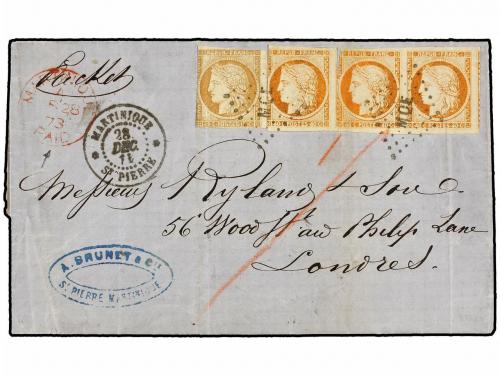 REPUB. FRANC. REPUB. FRANC. REPUB. FRANC.
MQE MQE
28
73
PAID
MARTINIQUE
28
DEC.
ST PIERRE
Messieurs Ryland & Son
56 Wood Stt au Philip Lane
Londres.
A. BRUNET & CIE
ST PIERRE MARTINIQUE